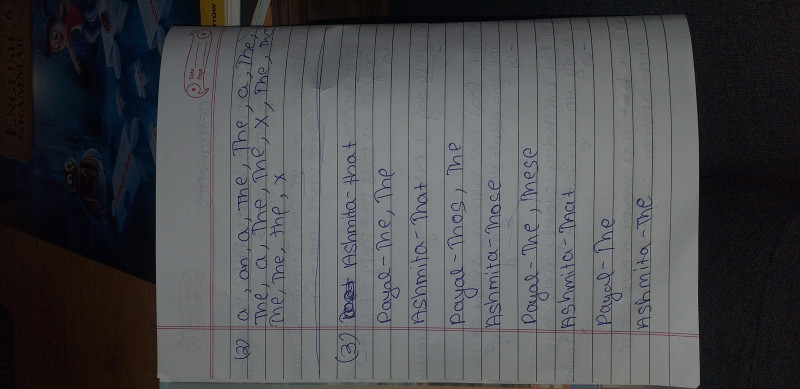 Date
Page
(2) a, an, a, The, The, a, The,
The, a, The, The, x, The, The
The, The, The, x
(3) Ashmita-that
Payal-The, The
Ashmita-That
Payal-Thos, The
Ashmita-Those
Payal-The, These
Ashmita-That
Payal-The
Ashmita-The
ENGLISH
GRAMMAR